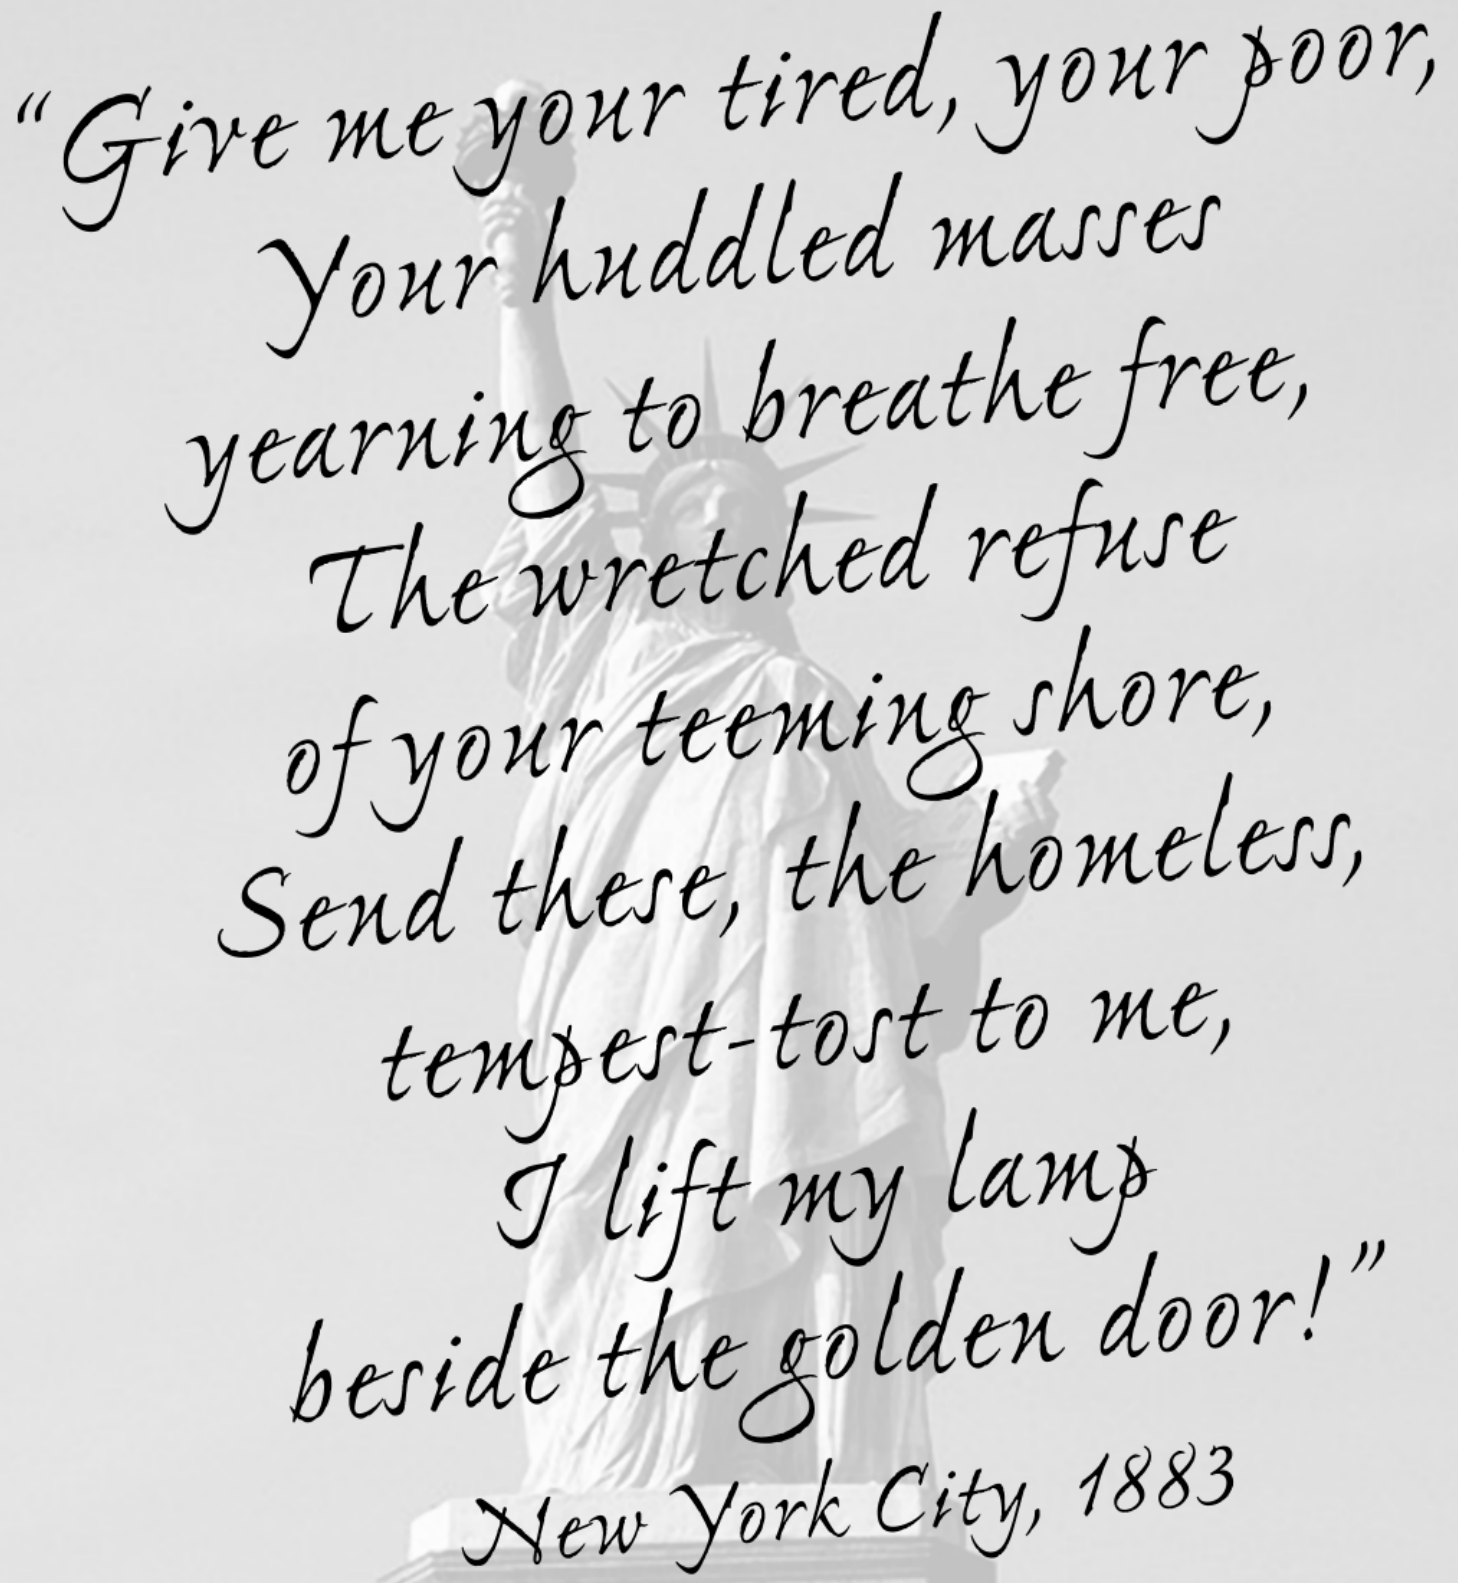 “Give me your tired, your poor,
Your huddled masses
yearning to breathe free,
The wretched refuse
of your teeming shore,
Send these, the homeless,
tempest-tost to me,
I lift my lamp
beside the golden door!”
New York City, 1883